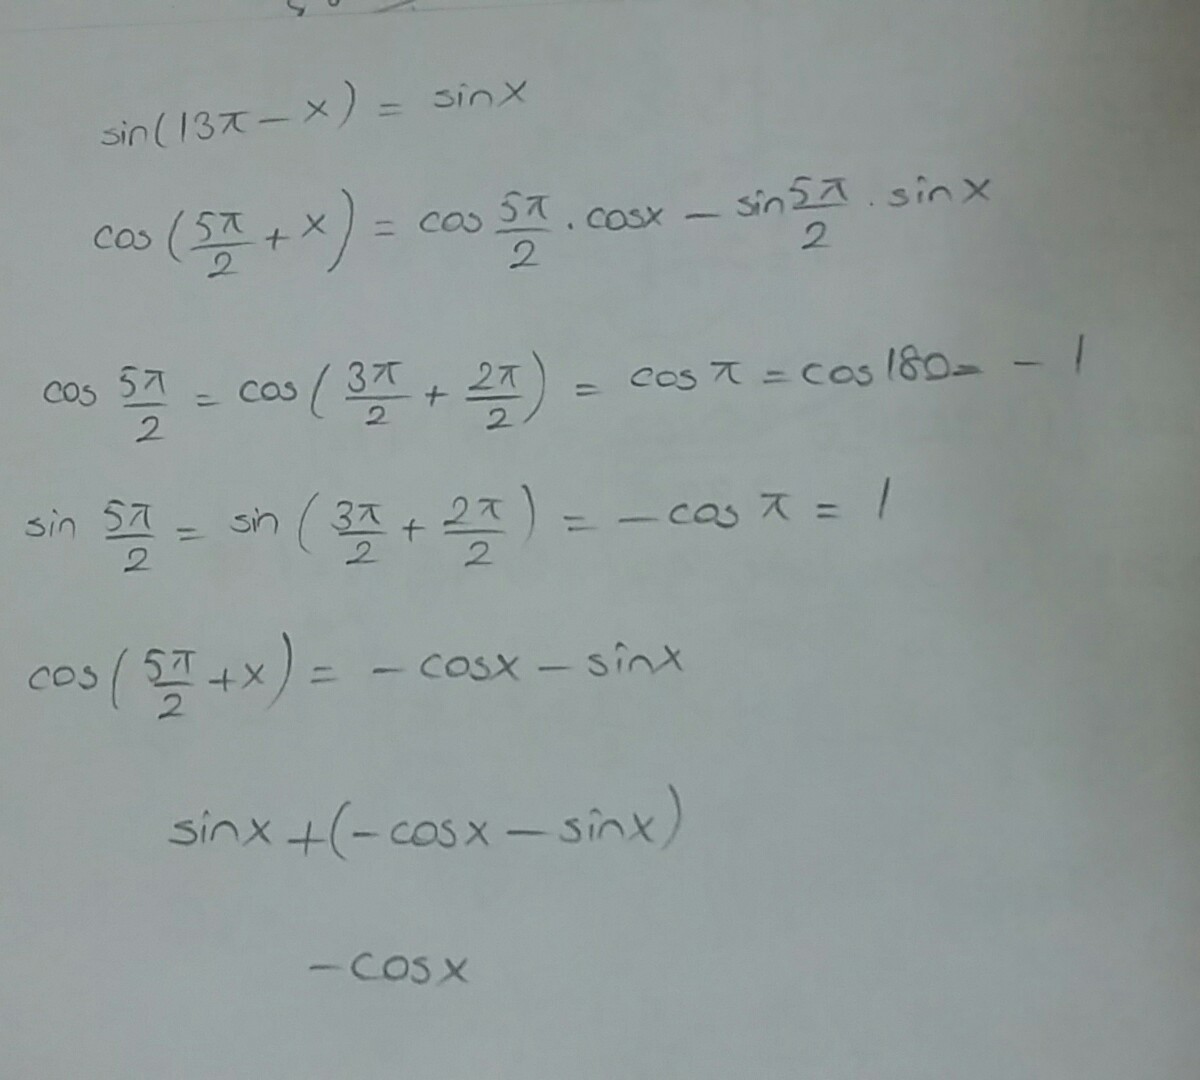 sin(13π - x) = sinx
cos(5π/2 + x) = cos 5π/2 . cosx - sin 5π/2 . sinx
cos 5π/2 = cos(3π/2 + 2π/2) = cos π = cos 180 = - 1
sin 5π/2 = sin(3π/2 + 2π/2) = - cos π = 1
cos(5π/2 + x) = - cosx - sinx
sinx + (- cosx - sinx)
- cosx